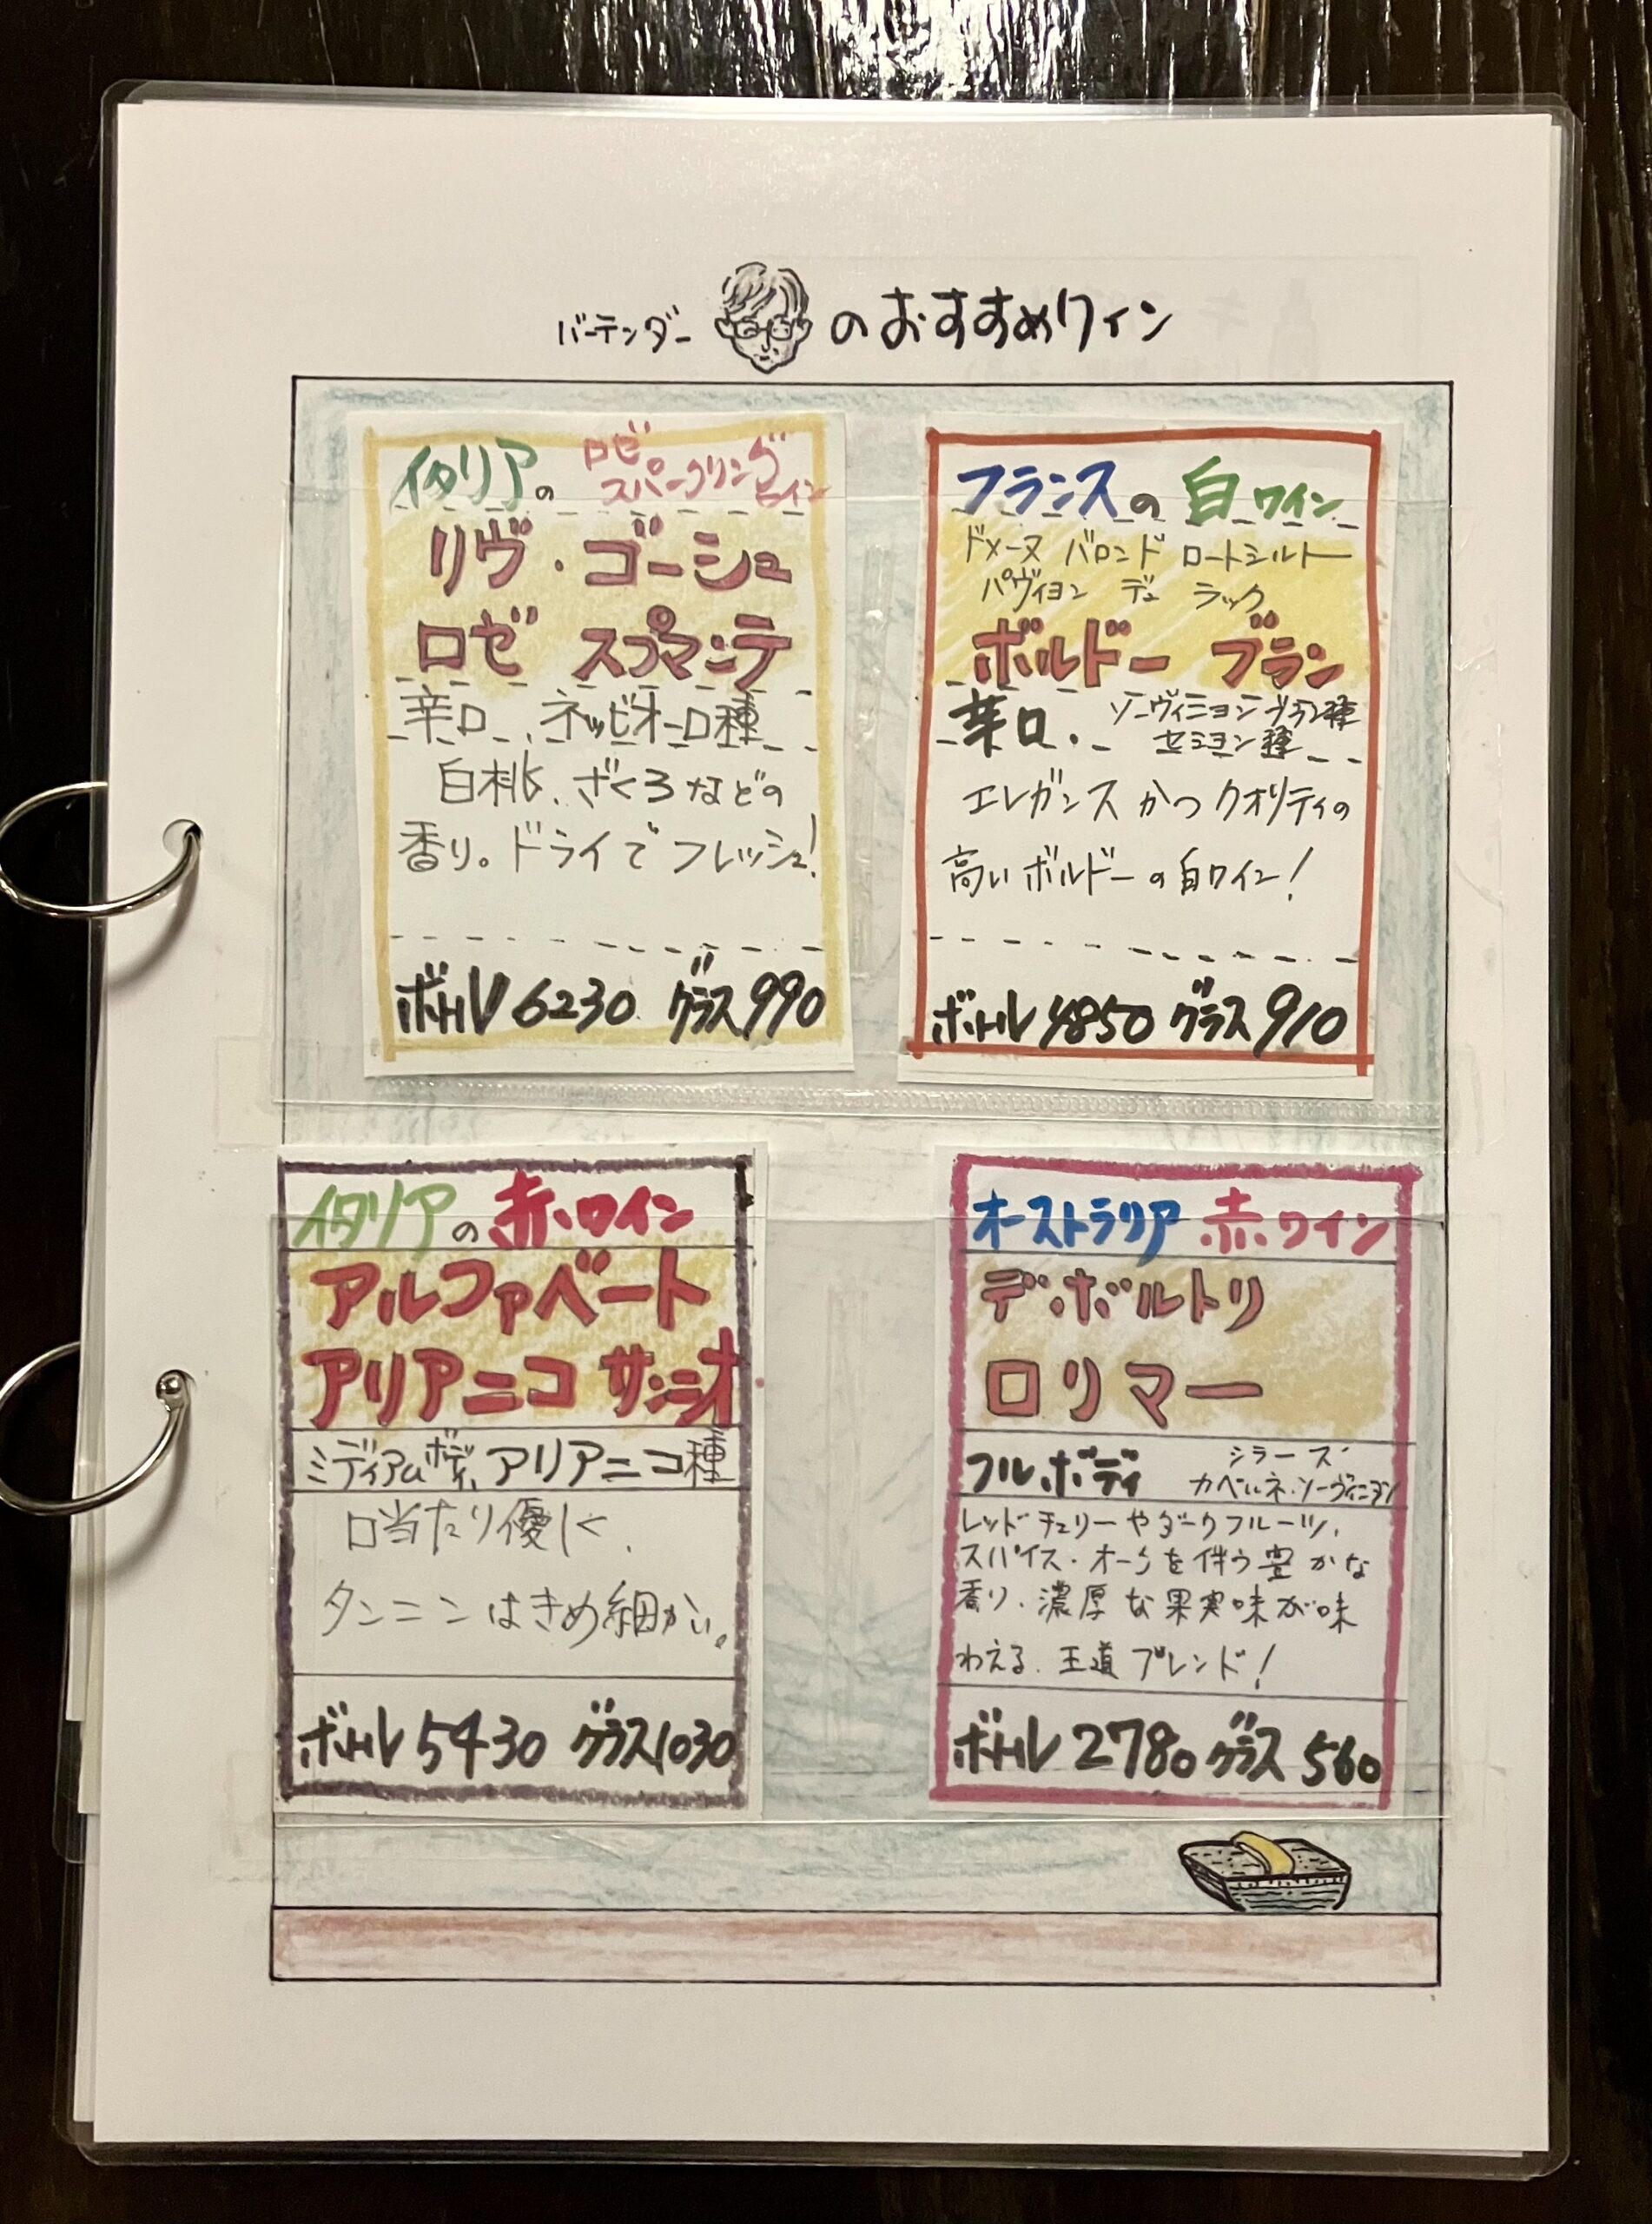 バーテンダー のおすすめワイン
イタリアの ロゼ スパークリングワイン
リヴ・ゴーシュ
ロゼ スプマンテ
辛口、ネッビオーロ種
白桃、ざくろなどの
香り。ドライでフレッシュ!
ボトル 6230 グラス 990
フランスの 白ワイン
ドメーヌ バロンド ロートシルト
パヴィヨン デュ ラック
ボルドー ブラン
辛口. ソーヴィニヨンブラン種
セミヨン種
エレガンスかつクオリティの
高いボルドーの白ワイン!
ボトル 4850 グラス 910
イタリアの 赤ワイン
アルファベート
アリアニコ サンニオ
ミディアムボディ、アリアニコ種
口当たり優しく、
タンニンはきめ細かい。
ボトル 5430 グラス 1030
オーストラリア 赤ワイン
デ・ボルトリ
ロリマー
フルボディ シラーズ
カベルネ・ソーヴィニヨン
レッドチェリーやダークフルーツ、
スパイス・オークを伴う豊かな
香り、濃厚な果実味が味
わえる、王道ブレンド!
ボトル 2780 グラス 560